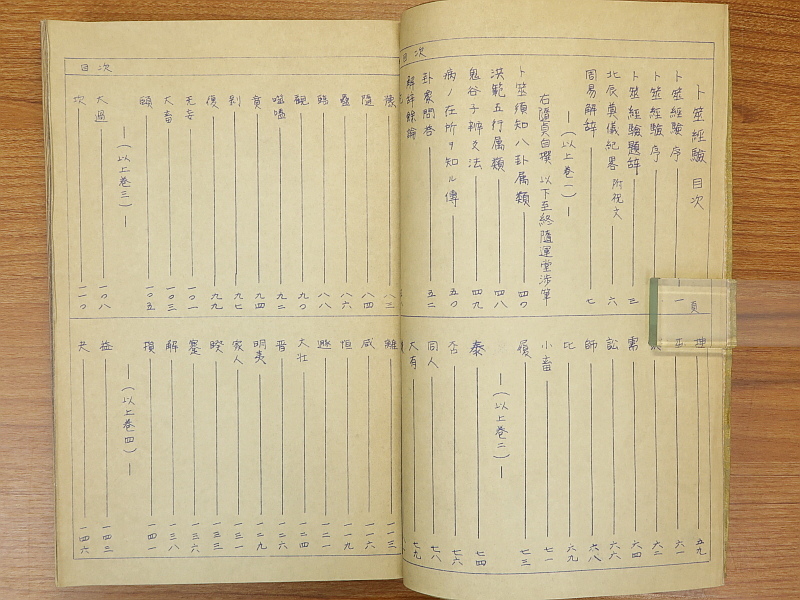 目次
卜筮經驗 目次
頁
卜筮經驗序 一
卜筮經驗序
卜筮經驗題辞 三
北辰奠儀紀畧 附祝文 六
周易解辞 七
(以上巻一)
右隨貞白撰 以下至終隨運堂涉筆
卜筮須知八卦属類 四〇
洪範五行属類 四八
鬼谷子辨爻法 四九
病ノ在所ヲ知ル傳 五〇
卦象問答 五二
解辞餘論
五九
六一
六二
需 六四
訟 六六
師 六八
比 六九
小畜 七一
履 七三
(以上巻二)
泰 七四
否 七六
同人 七八
大有 七九
目次
豫 八三
隨 八四
蠱 八六
臨 八八
觀 九〇
噬嗑 九二
賁 九四
剝 九七
復 九九
无妄 一〇一
大畜 一〇三
頤 一〇五
(以上巻三)
大過 一〇八
坎 一一〇
離 一一三
咸 一一六
恒 一一九
遯 一二一
大壮 一二四
晋 一二六
明夷 一二九
家人 一三一
睽 一三三
蹇 一三六
解 一三八
損 一四一
(以上巻四)
益 一四三
夬 一四六